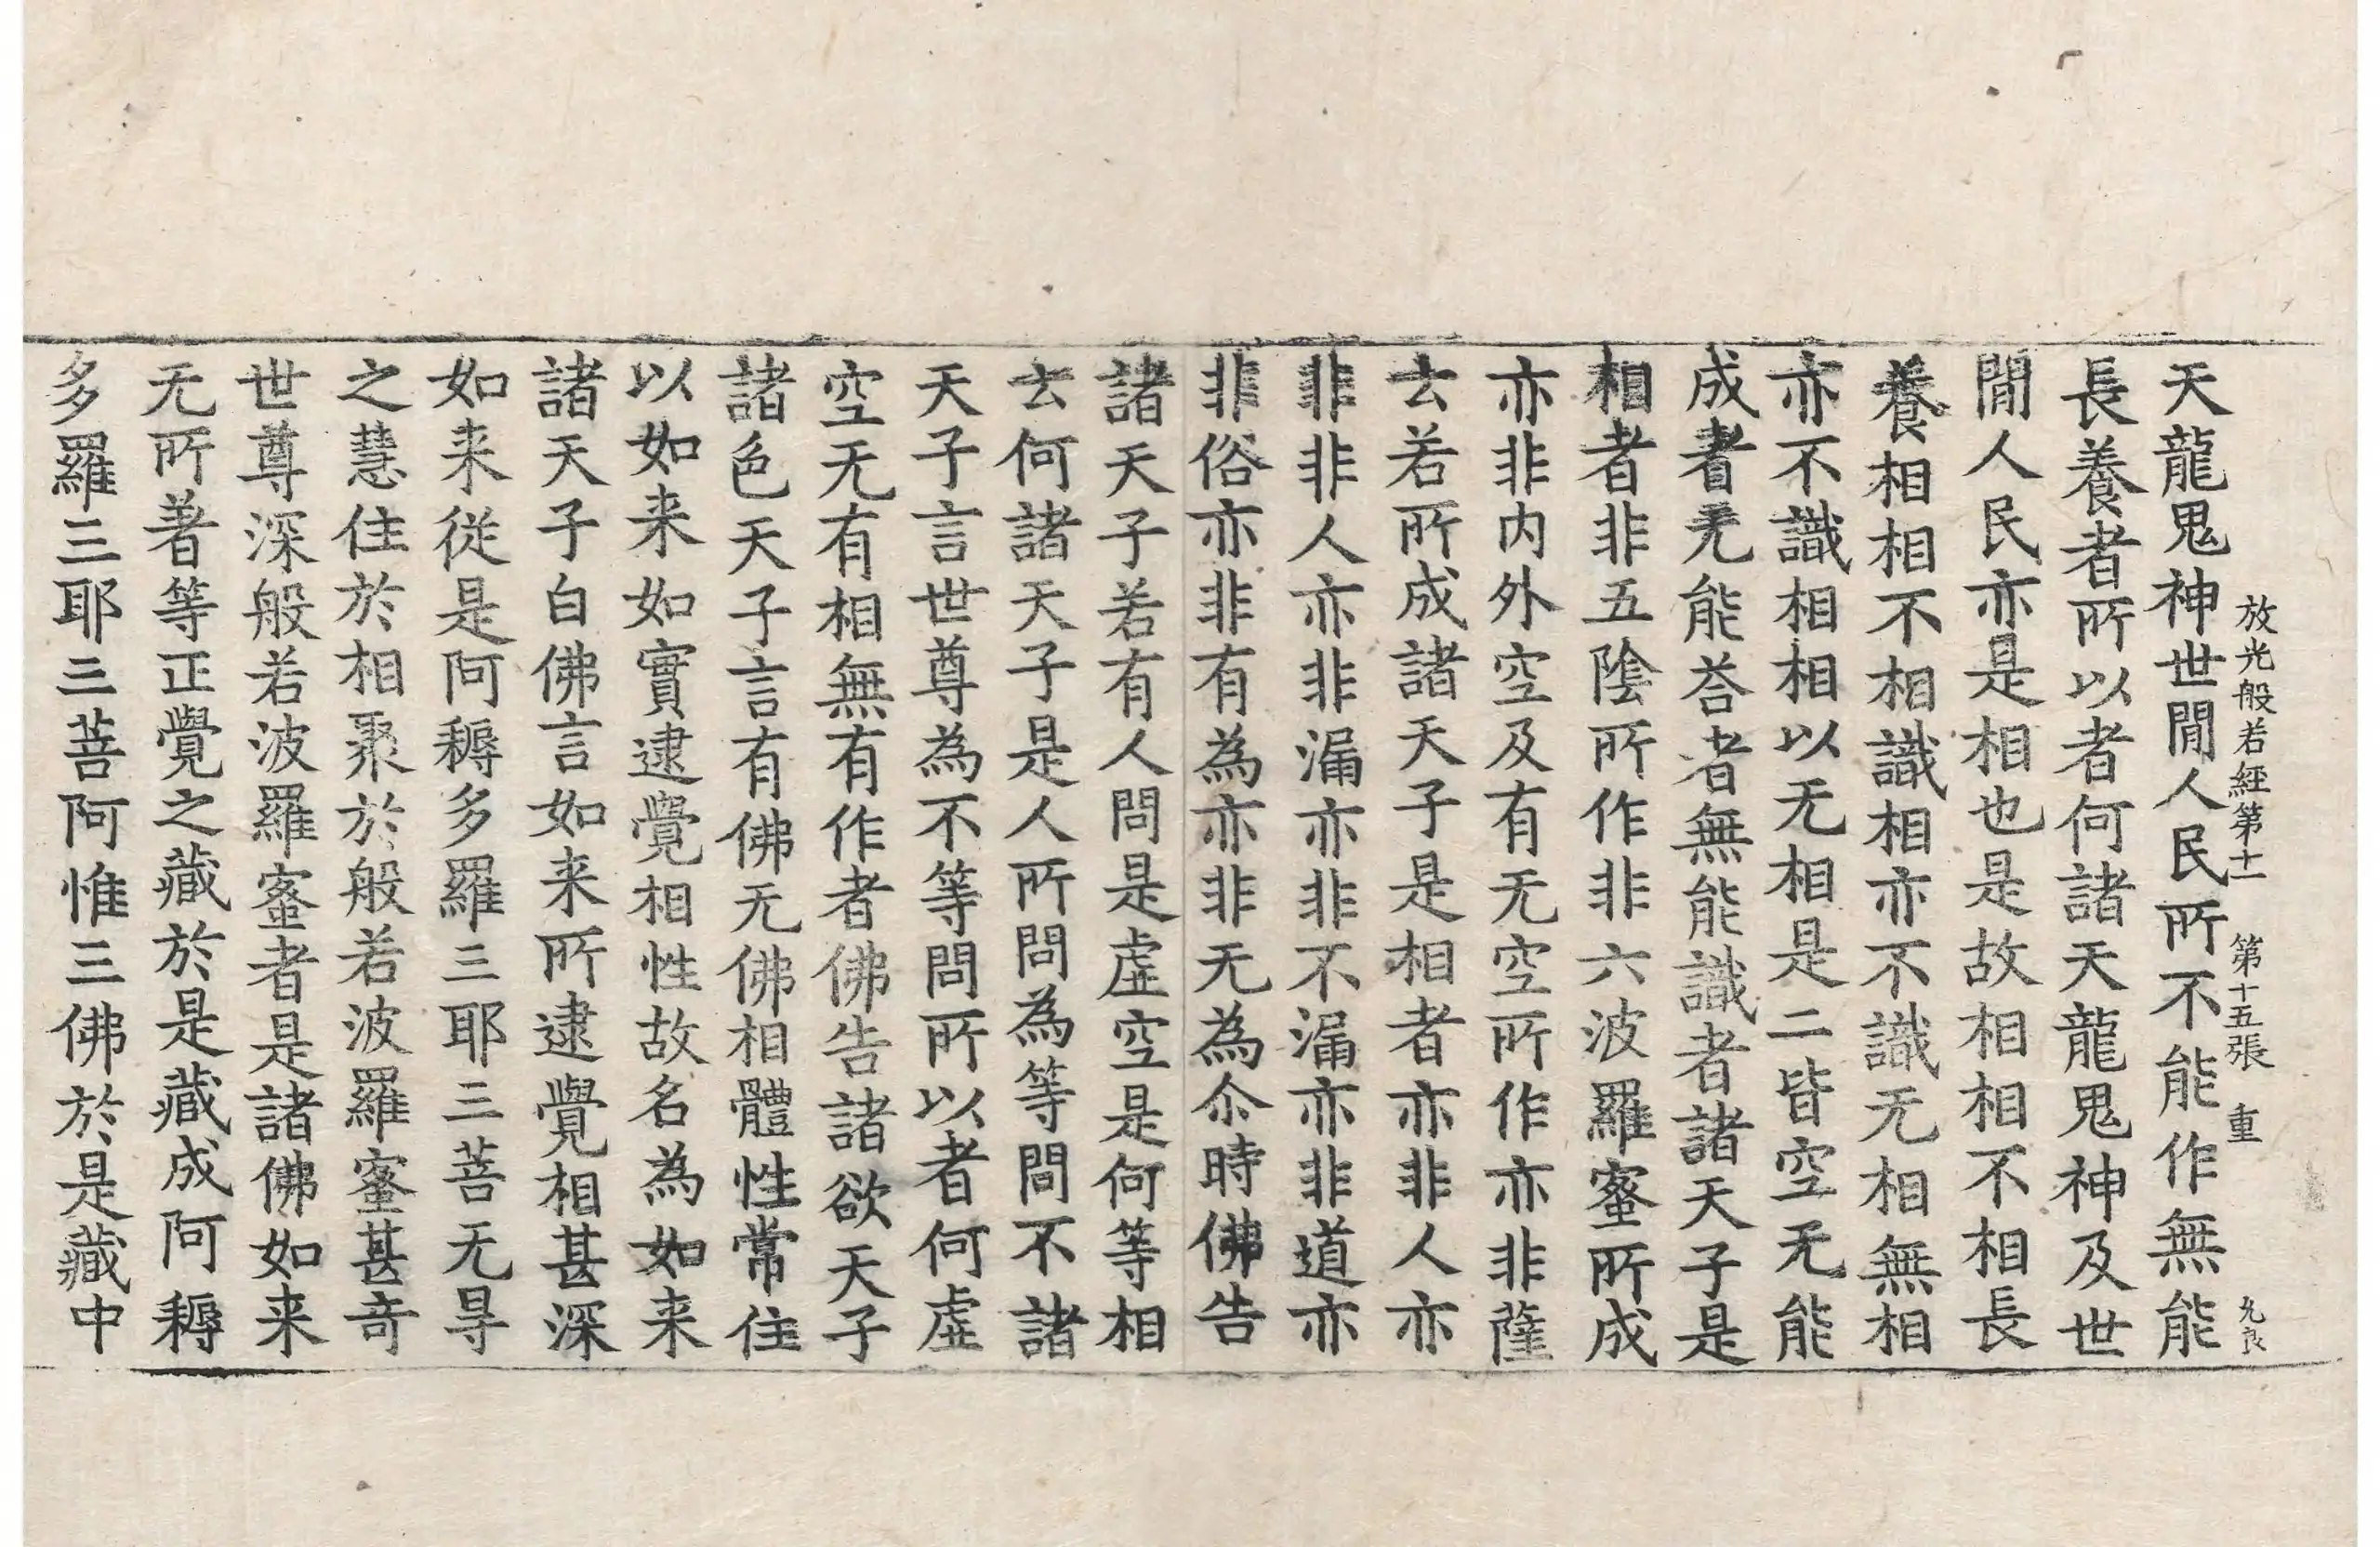 放光般若經第十一 第十五張 重 允良
天龍鬼神世間人民所不能作無能
長養者所以者何諸天龍鬼神及世
間人民亦是相也是故相相不相長
養相相不相識相亦不識无相無相
亦不識相相以无相是二皆空无能
成者无能荅者無能識者諸天子是
相者非五陰所作非六波羅蜜所成
亦非内外空及有无空所作亦非薩
云若所成諸天子是相者亦非人亦
非非人亦非漏亦非不漏亦非道亦
非俗亦非有為亦非无為尒時佛告
諸天子若有人問是虛空是何等相
云何諸天子是人所問為等問不諸
天子言世尊為不等問所以者何虛
空无有相無有作者佛告諸欲天子
諸色天子言有佛无佛相體性常住
以如来如實逮覺相性故名為如来
諸天子白佛言如来所逮覺相甚深
如来從是阿耨多羅三耶三菩无㝵
之慧住於相聚於般若波羅蜜甚奇
世尊深般若波羅蜜者是諸佛如来
无所著等正覺之藏於是藏成阿耨
多羅三耶三菩阿惟三佛於是藏中